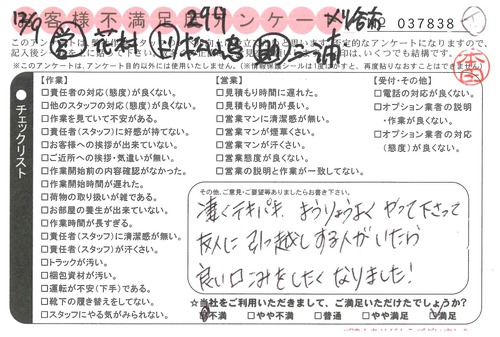 12/9 営 花村
お客様不満足アンケート
037838
記入後シール
※このアンケートは、アンケート目的以外には使用いたしません。
チェックリスト
【作業】
□責任者の対応(態度)が良くない。
□他のスタッフの対応(態度)が良くない。
□作業を見ていて不安がある。
□責任者(スタッフ)に好感が持てない。
□お客様への挨拶が出来ていない。
□ご近所への挨拶・気遣いが無い。
□作業開始前の内容確認がなかった。
□作業開始時間が遅れた。
□荷物の取り扱いが雑である。
□お部屋の養生が出来ていない。
□作業時間が長すぎる。
□責任者(スタッフ)に清潔感が無い。
□責任者(スタッフ)が汗くさい。
□トラックが汚い。
□梱包資材が汚い。
□運転が不安(下手)である。
□靴下の履き替えをしてない。
□スタッフにやる気がみられない。
【営業】
□見積もり時間に遅れた。
□見積もり時間が長い。
□営業マンに清潔感が無い。
□営業マンが煙草くさい。
□営業マンが汗くさい。
□営業態度が良くない。
□営業の説明と作業が一致してない。
【受付・その他】
□電話の対応が良くない。
□オプション業者の説明
・作業が良くない。
□オプション業者の対応
(態度)が良くない。
その他、ご意見・ご要望等ありましたらお書き下さい。
凄くテキパキ、ようりょうよくやって下さって
友人に引っ越しする人がいたら
良い口こみをしたくなりました!
☆当社をご利用いただきまして、ご満足いただけたでしょうか?
□不満 □やや不満 □普通 □やや満足 □満足